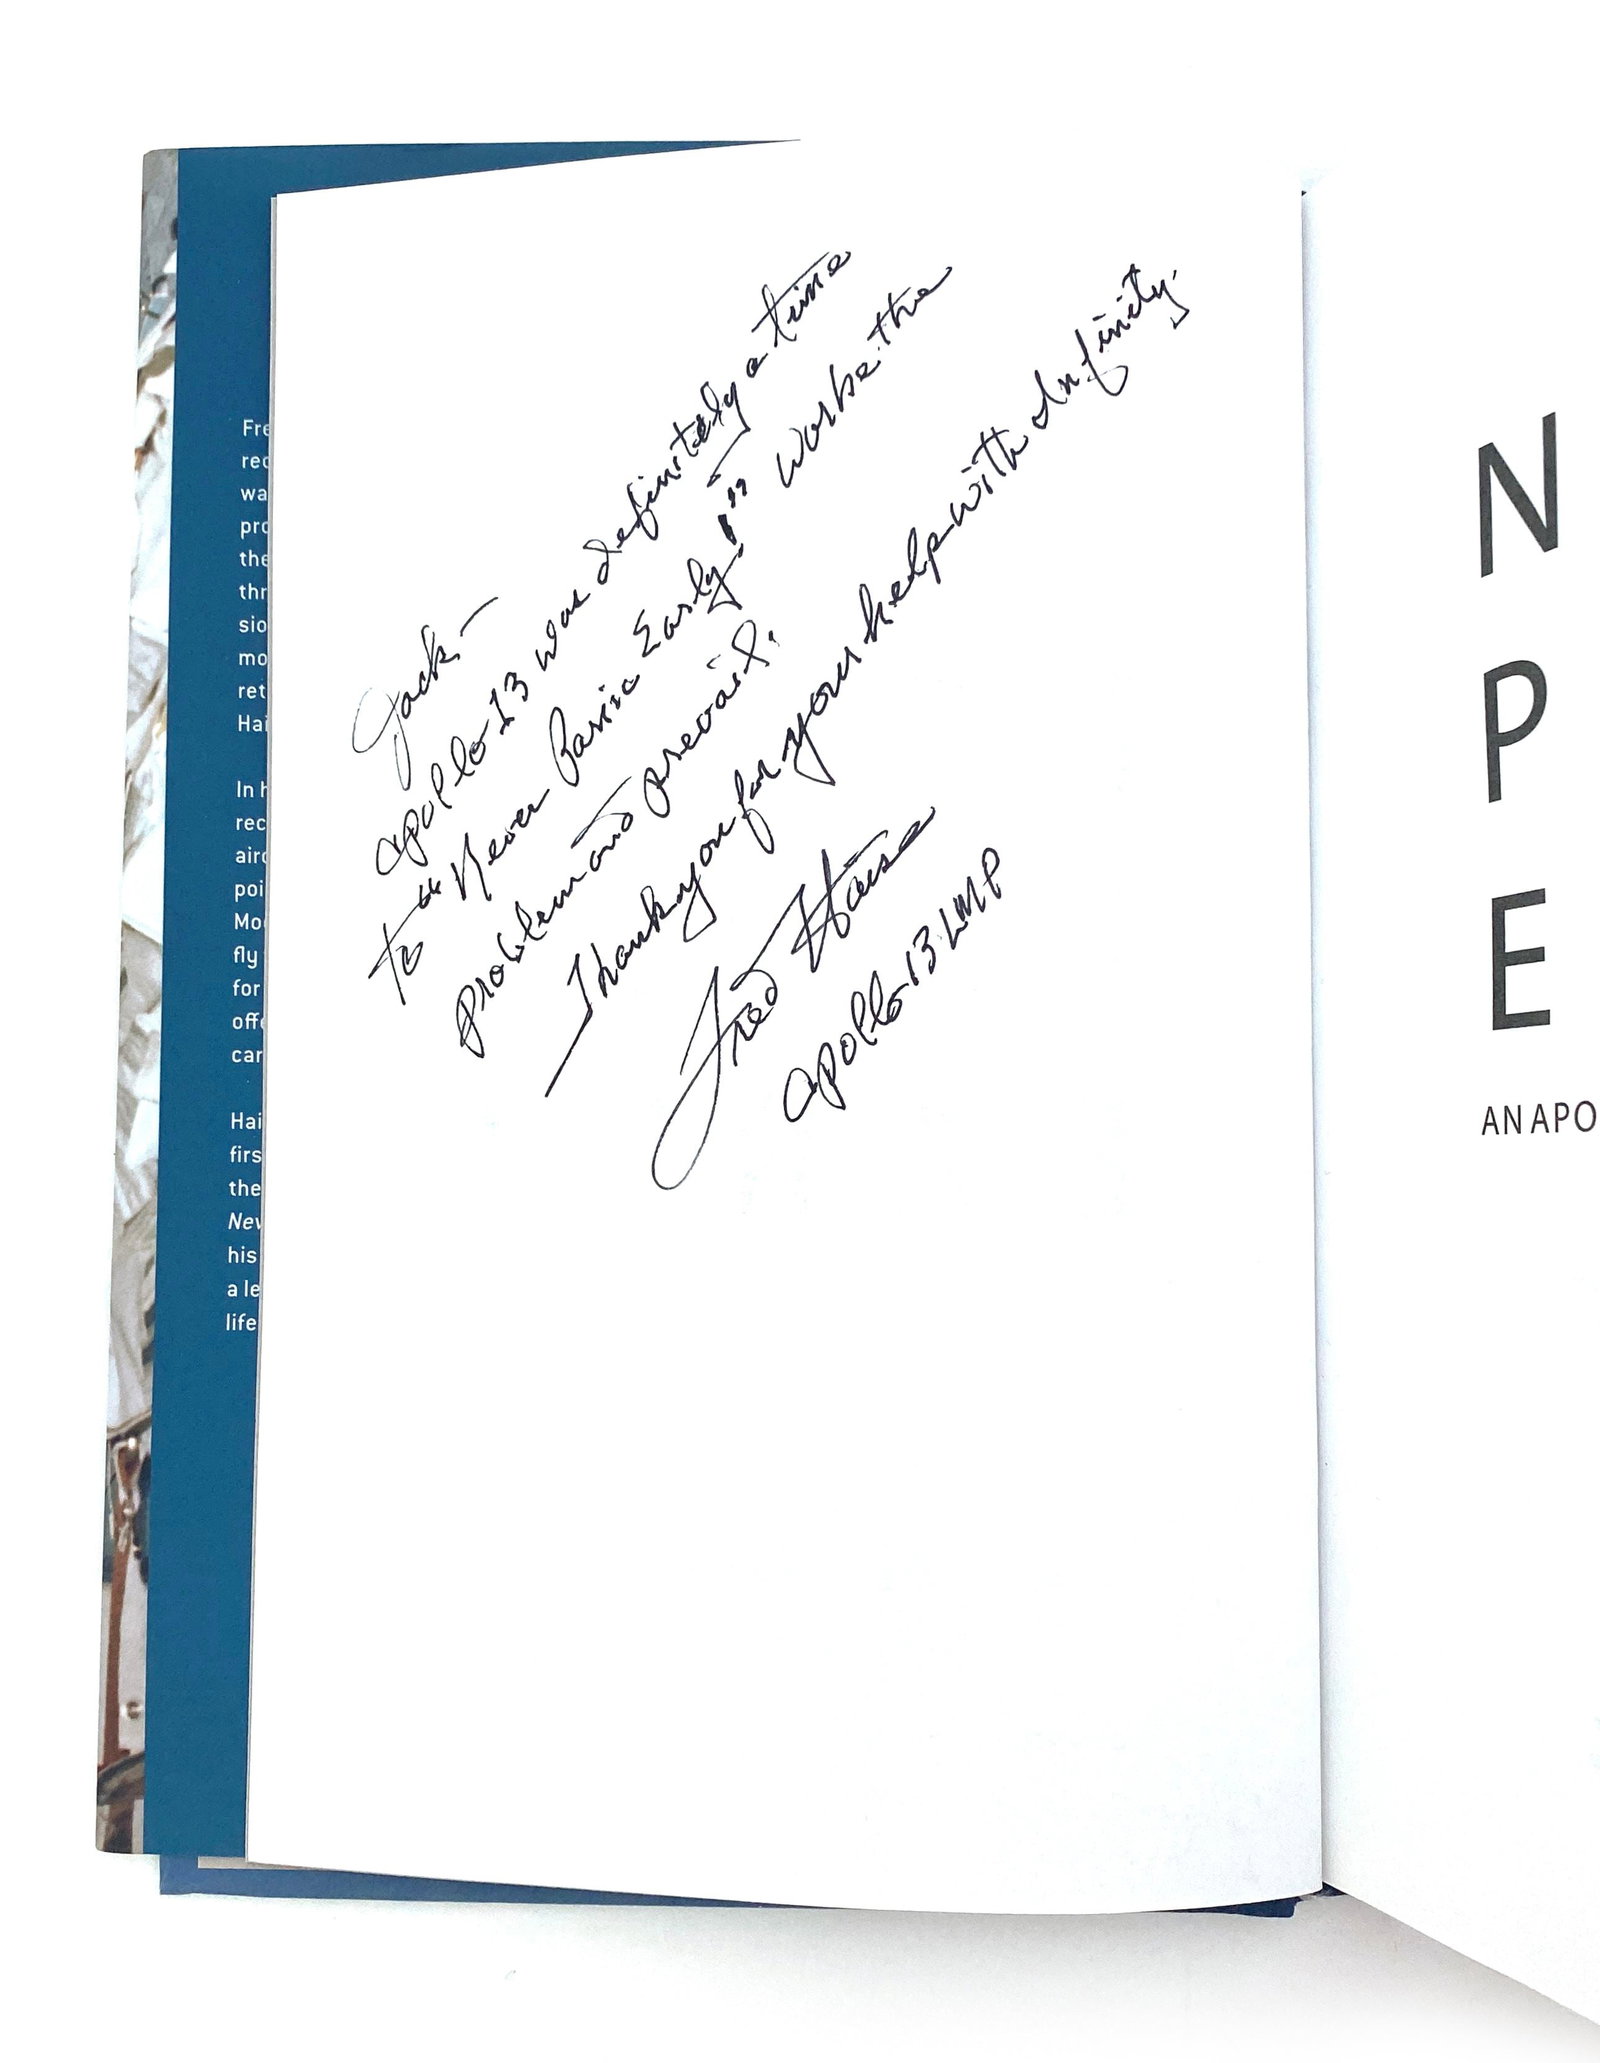 Jack -
Apollo 13 was definitely a time
to "Never Panic Early!" Work the
problem and prevail.
Thank you for your help with Infinity.
Fred Haise
Apollo 13 LMP
Fre
rec
wa
pro
the
thr
sio
mo
ret
Hai
In h
rec
airc
poi
Mod
fly
for
offe
car
Hai
firs
the
Nev
his
a le
life
N
P
E
AN APO